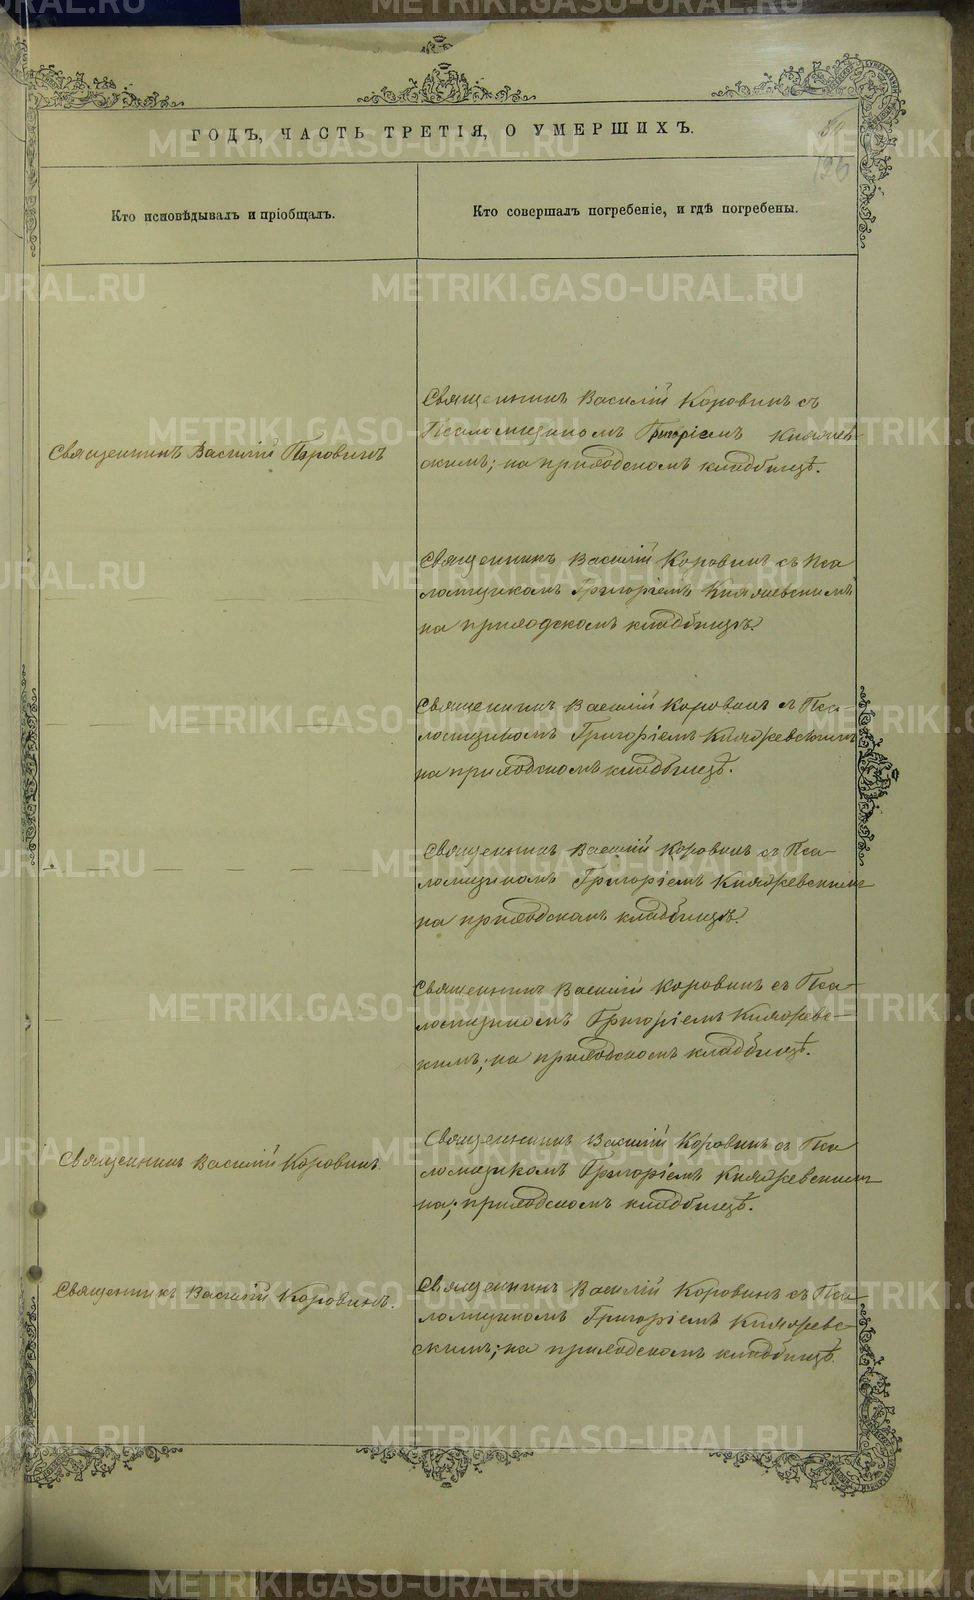 ГОДЪ, ЧАСТЬ ТРЕТІЯ, О УМЕРШИХЪ.
Кто исповѣдывалъ и пріобщалъ.
Кто совершалъ погребеніе, и гдѣ погребены.
Священникъ Василій Коровинъ съ
Псаломщикомъ Григоріемъ Княжев-
скимъ; на приходскомъ кладбищѣ.
Священникъ Василій Коровинъ
Священникъ Василій Коровинъ съ Пса
ломщикомъ Григоріемъ Княжевскимъ
на приходскомъ кладбищѣ.
Священникъ Василій Коровинъ съ Пса-
ломщикомъ Григоріемъ Княжевскимъ
на приходскомъ кладбищѣ.
Священникъ Василій Коровинъ съ Пса-
ломщикомъ Григоріемъ Княжевскимъ
на приходскомъ кладбищѣ.
Священникъ Василій Коровинъ съ Пса-
ломщикомъ Григоріемъ Княжевс-
кимъ; на приходскомъ кладбищѣ.
Священникъ Василій Коровинъ
Священникъ Василій Коровинъ съ Пса
ломщикомъ Григоріемъ Княжевскимъ
на; приходскомъ кладбищѣ.
Священникъ Василій Коровинъ.
Священникъ Василій Коровинъ съ Пса
ломщикомъ Григоріемъ Княжевс-
скимъ; на приходскомъ кладбищѣ.
METRIKI.GASO-URAL.RU